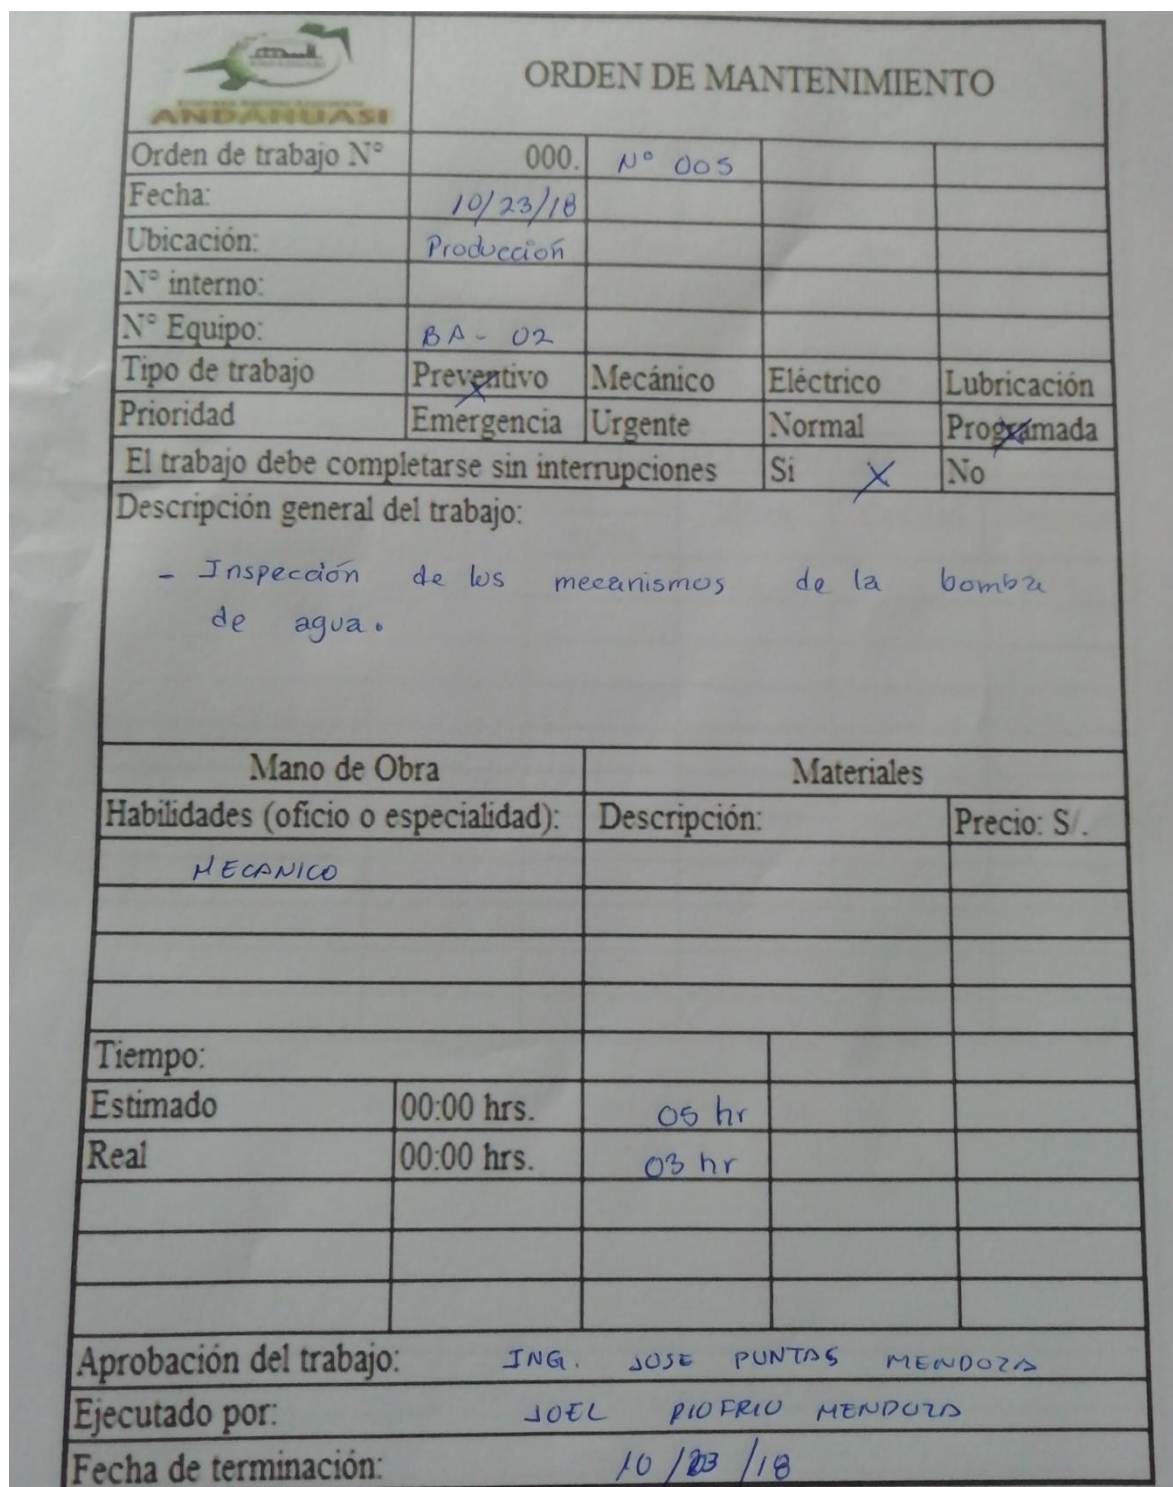 ANDAHUASI
ORDEN DE MANTENIMIENTO
Orden de trabajo N° 000. N° 005
Fecha: 10/23/18
Ubicación: Producción
N° interno:
N° Equipo: BA - 02
Tipo de trabajo Preventivo Mecánico Eléctrico Lubricación
Prioridad Emergencia Urgente Normal Programada
El trabajo debe completarse sin interrupciones Si X No
Descripción general del trabajo:
- Inspección de los mecanismos de la bomba
de agua.
Mano de Obra Materiales
Habilidades (oficio o especialidad): Descripción: Precio: S/.
MECANICO
Tiempo:
Estimado 00:00 hrs. 05 hr
Real 00:00 hrs. 03 hr
Aprobación del trabajo: ING. JOSE PUNTAS MENDOZA
Ejecutado por: JOEL RIOFRIO MENDOZA
Fecha de terminación: 10/23/18